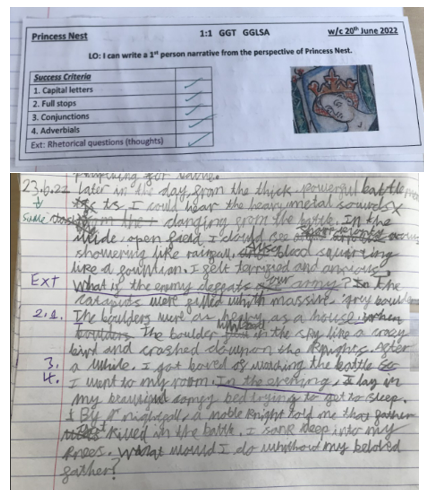 Princess Nest 1:1 GGT GGLSA w/c 20th June 2022
LO: I can write a 1st person narrative from the perspective of Princess Nest.
Success Criteria
1. Capital letters
2. Full stops
3. Conjunctions
4. Adverbials
Ext: Rhetorical questions (thoughts)
23.6.22 later in the day from the thick, powerful battle
I could hear the heavy metal sounds
clanging from the battle. In the
wide, open field, I could see
showering like rainfall, blood squirting
like a fountain. I felt terrified and anxious.
Ext What if the enemy defeats our army? In the
catapults were filled with massive, grey boulders
2.1. The boulders were as heavy as a house. When
boulders The boulder in the sky like a crazy
bird and crashed down on the knights. After
3. a while, I got bored of waching the battle so
4. I went to my room. In the evening, I lay in
my beautiful comfy bed trying to get to sleep.
By nightfall, a noble knight told me that father
killed in the battle. I sank deep into my
knees. What would I do without my beloved
father?